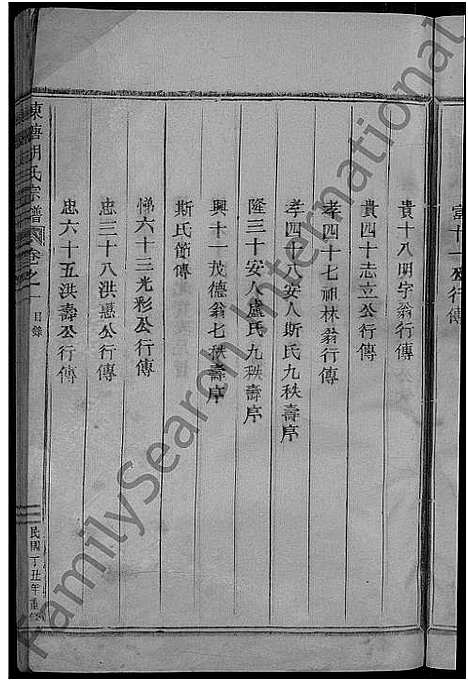 富十一公行傳
貴十八明宇翁行傳
貴四十志立公行傳
孝四十七祖林翁行傳
孝四十八安人斯氏九秩壽序
隆三十安人盧氏九秩壽序
興十一茂德翁七秩壽序
斯氏節傳
悌六十三光彩公行傳
忠三十八洪惠公行傳
忠六十五洪壽公行傳
東蓭胡氏宗譜 卷之一 目錄 民國丁丑年重修
FamilySearch International